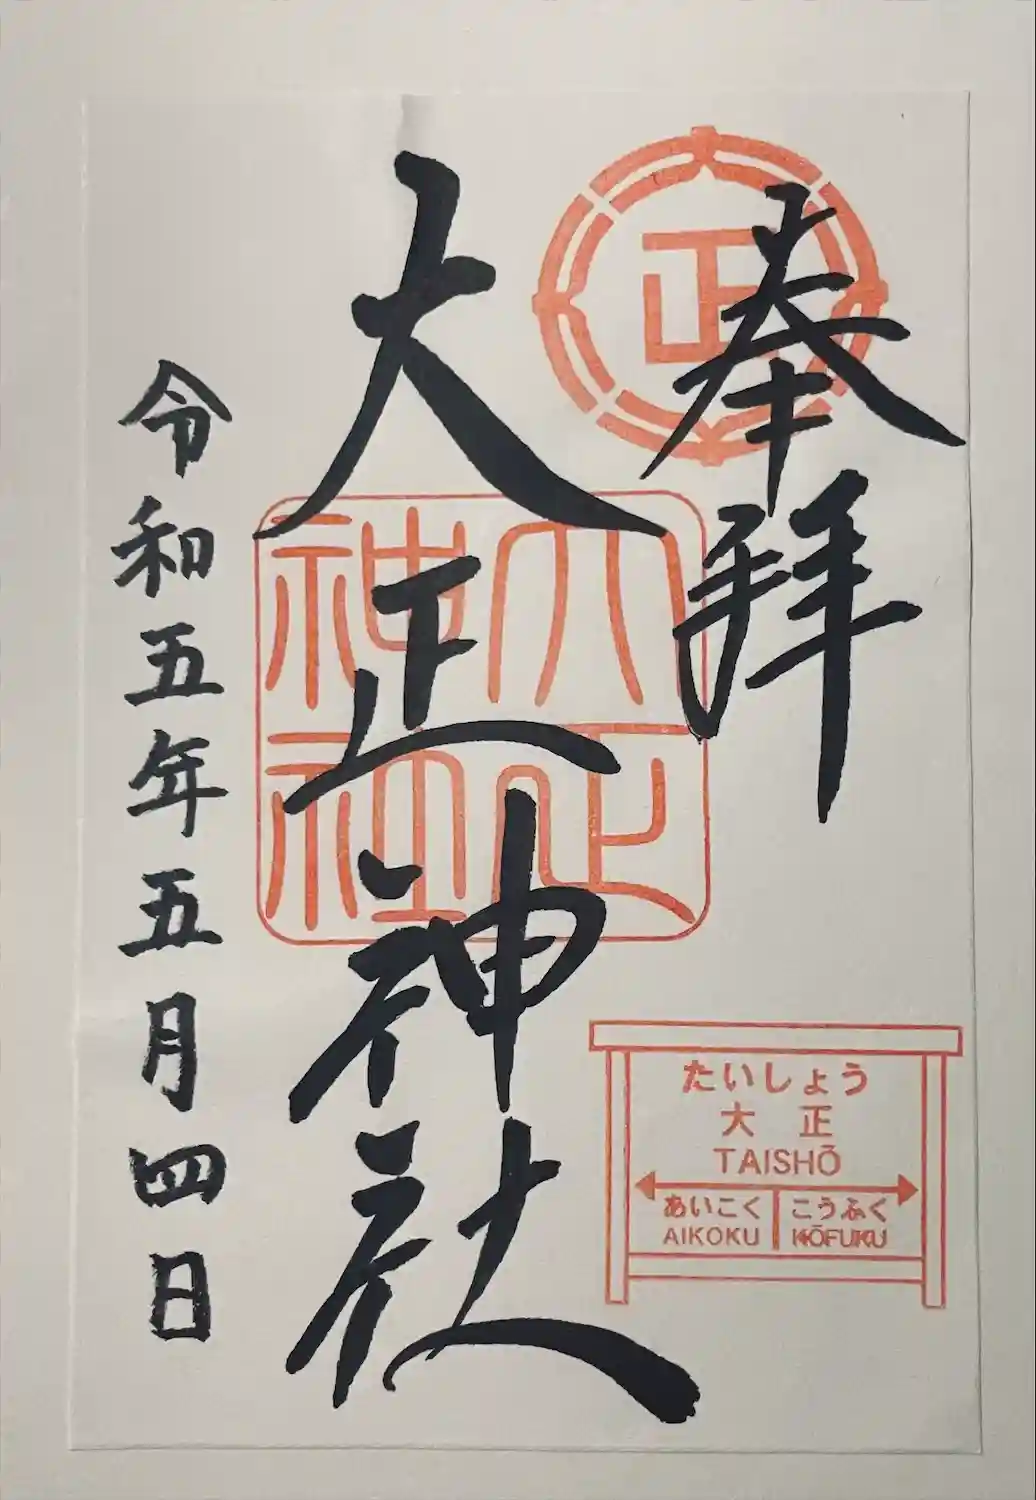 奉拝
正
大正神社
大正神社
たいしょう
大正
TAISHŌ
あいこく
こうふく
AIKOKU
KŌFUKU
令和五年五月四日